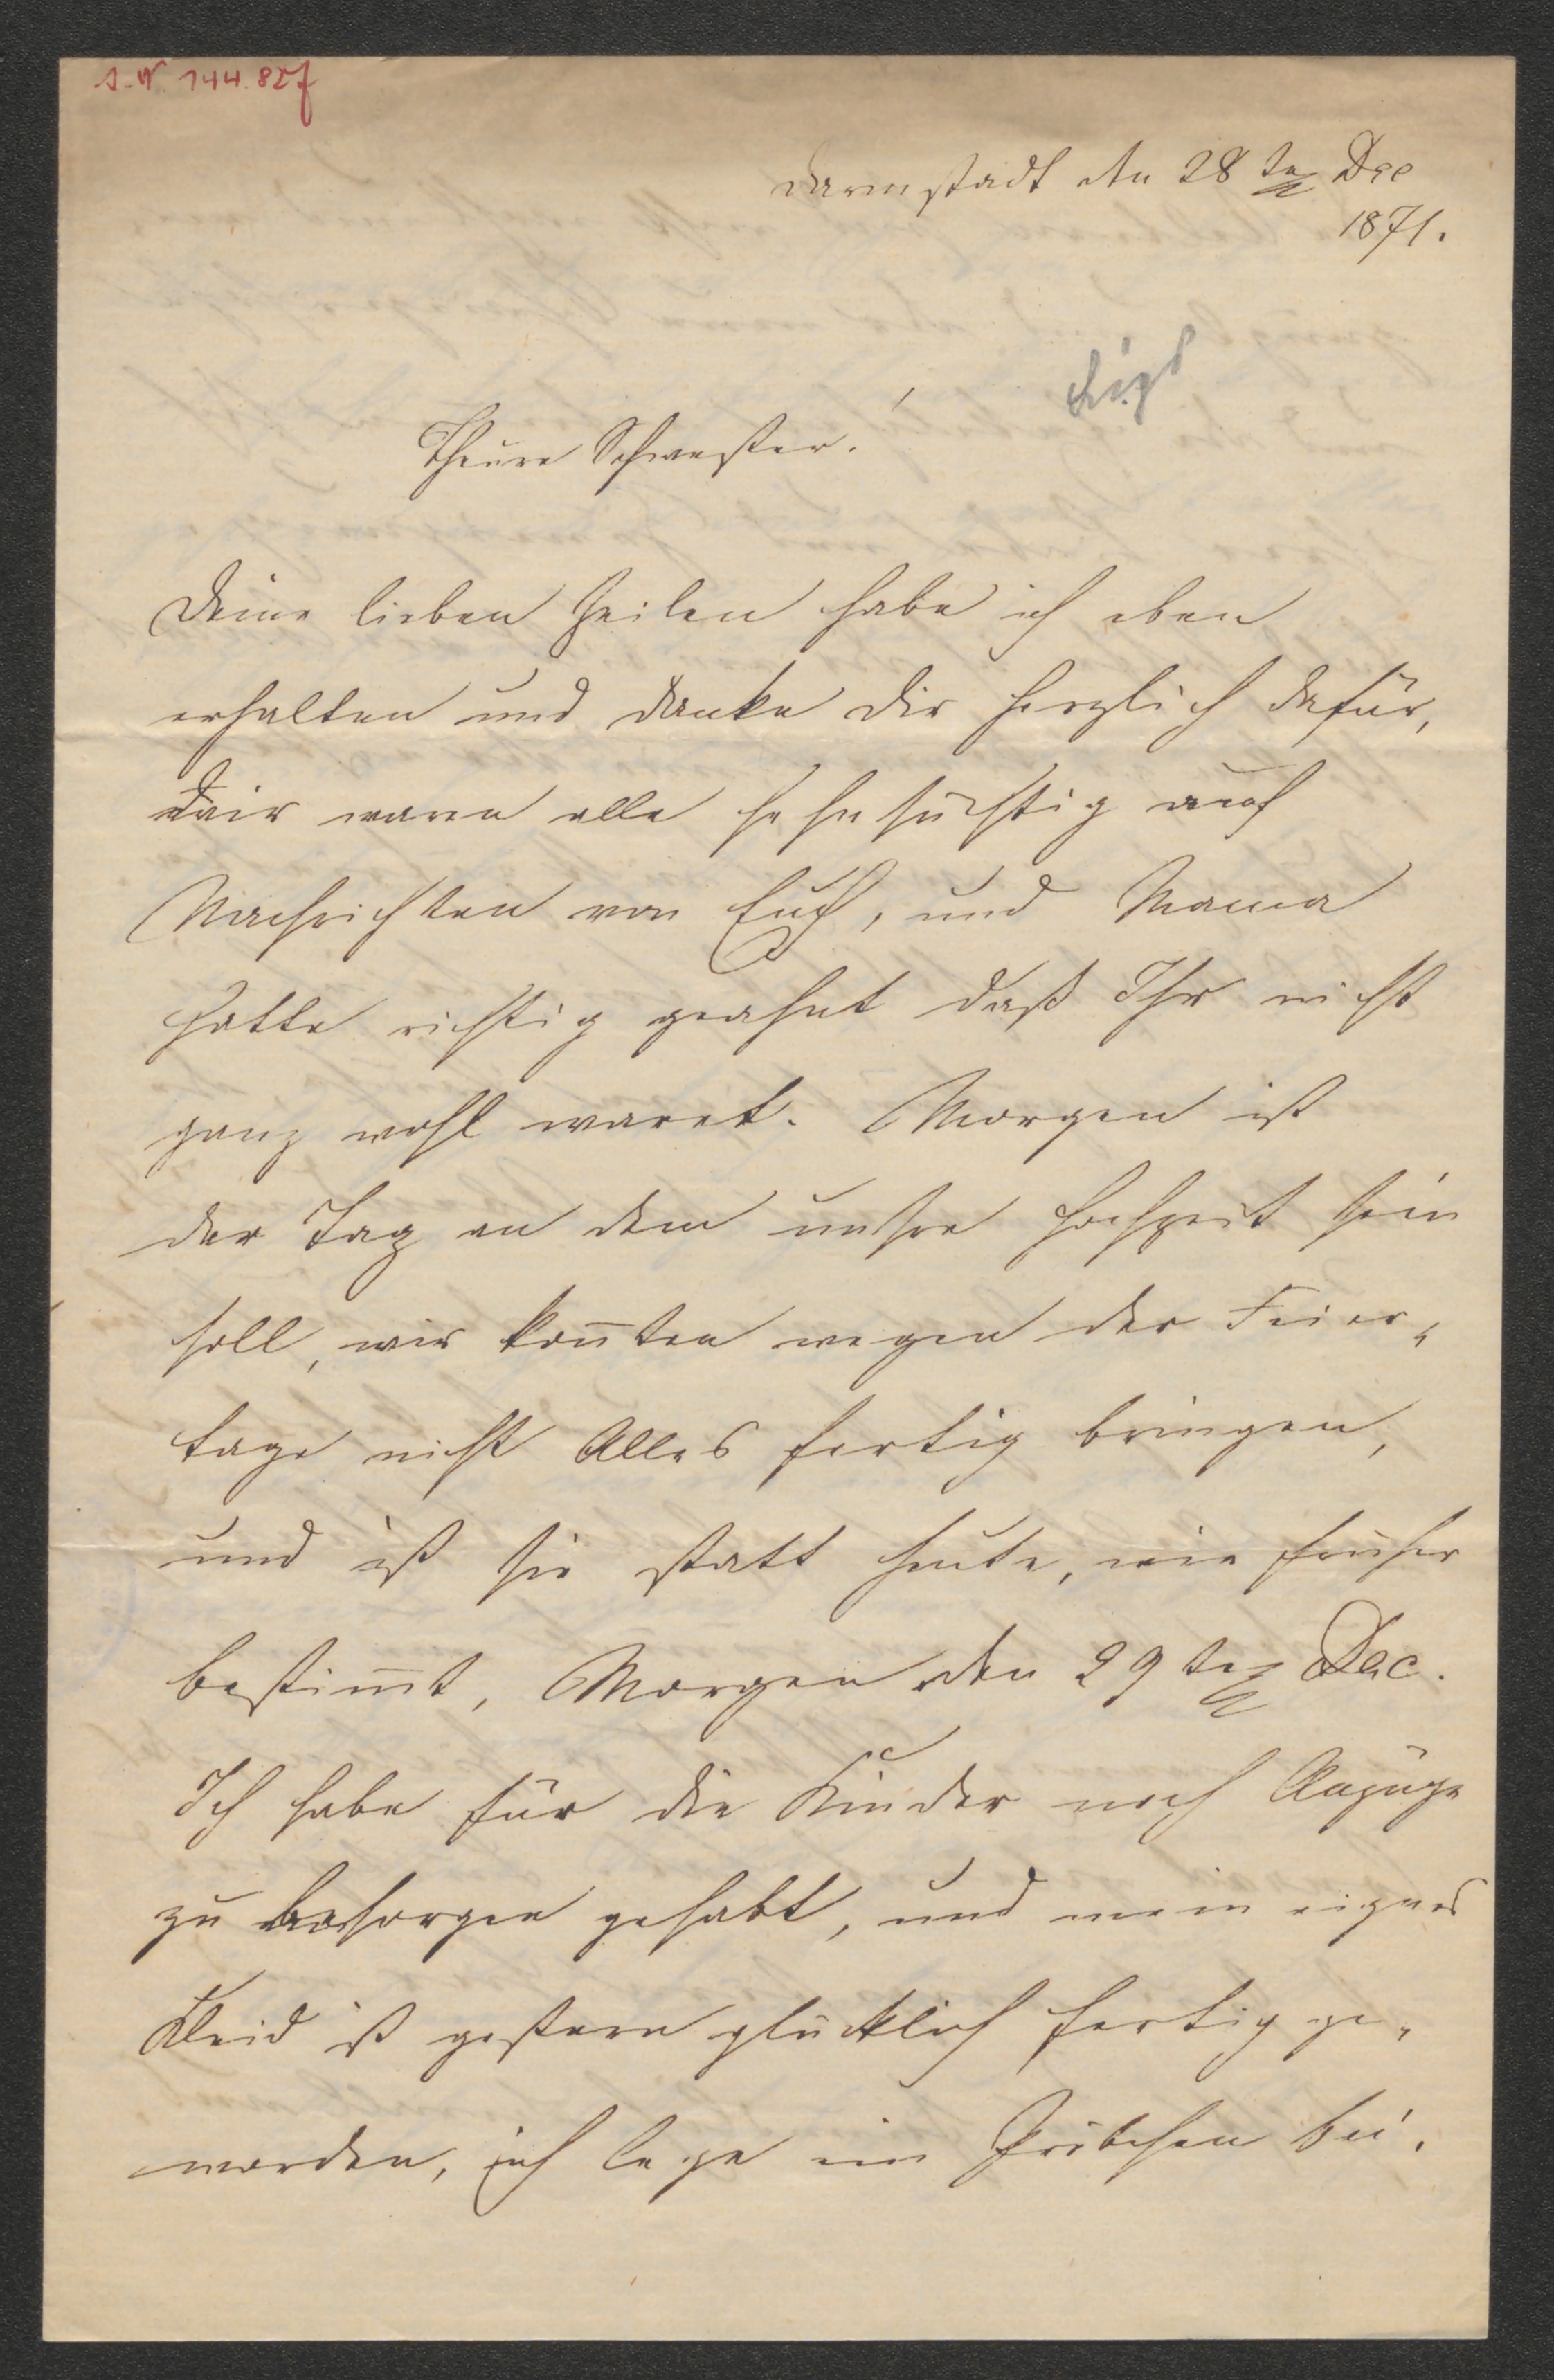 144.827
Darmstadt den 28ten Dec
1871.
Theure Schwester!
Deine lieben Zeilen habe ich eben
erhalten und danke dir herzlich dafür,
wir waren alle sehnsüchtig auf
Nachrichten von Euch, und Mama
hatte richtig geahnt daß Ihr nicht
ganz wohl waret. Morgen ist
der Tag an dem unsre Hochzeit sein
soll, wir konnten wegen der Feier-
tage nicht Alles fertig bringen,
und ist sie statt heute, wie früher
bestimmt, Morgen den 29ten Dec.
Ich habe für die Kinder noch Anzüge
zu besorgen gehabt, und mein eignes
Kleid ist gestern glücklich fertig ge-
worden, ich lege ein Pröbchen bei.